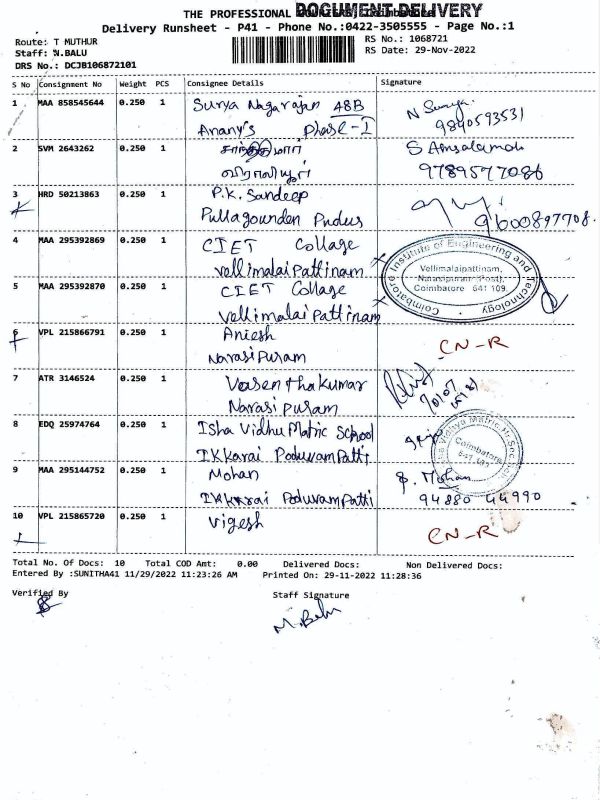 THE PROFESSIONAL COURIERS, Coimbatore
DOCUMENT DELIVERY
Delivery Runsheet - P41 - Phone No.:0422-3505555 - Page No.:1
Route: T MUTHUR
RS No.: 1068721
Staff: N.BALU
RS Date: 29-Nov-2022
DRS No.: DCJB106872101
S No Consignment No Weight PCS Consignee Details Signature
1 MAA 858545644 0.250 1 Surya Nagarajan 48B
Anany's Phase-I
N Surya
9840593531
2 SVM 2643262 0.250 1
9789577086
3 HRD 50213863 0.250 1 P.K. Sandeep
Pullagounden Pudur
9600897708.
4 MAA 295392869 0.250 1 CIET Collage
Vellimalaipattinam
Coimbatore Institute of Engineering and Technology
Vellimalaipattinam,
Narasipuram (Post),
Coimbatore 641 109.
5 MAA 295392870 0.250 1 CIET Collage
Vellimalaipattinam
6 VPL 215866791 0.250 1 Aniesh
Narasipuram
CN-R
7 ATR 3146524 0.250 1 Vasenthakumar
Narasipuram
8 EDQ 25974764 0.250 1 Isha Vidhu Matric School
IKKarai Poduvampatti
Coimbatore
9 MAA 295144752 0.250 1 Mohan
IKKarai Poduvampatti
P. Mohan
94880 44990
10 VPL 215865720 0.250 1 Vigesh
CN-R
Total No. Of Docs: 10 Total COD Amt: 0.00 Delivered Docs: Non Delivered Docs:
Entered By :SUNITHA41 11/29/2022 11:23:26 AM Printed On: 29-11-2022 11:28:36
Verified By Staff Signature
M. Balu